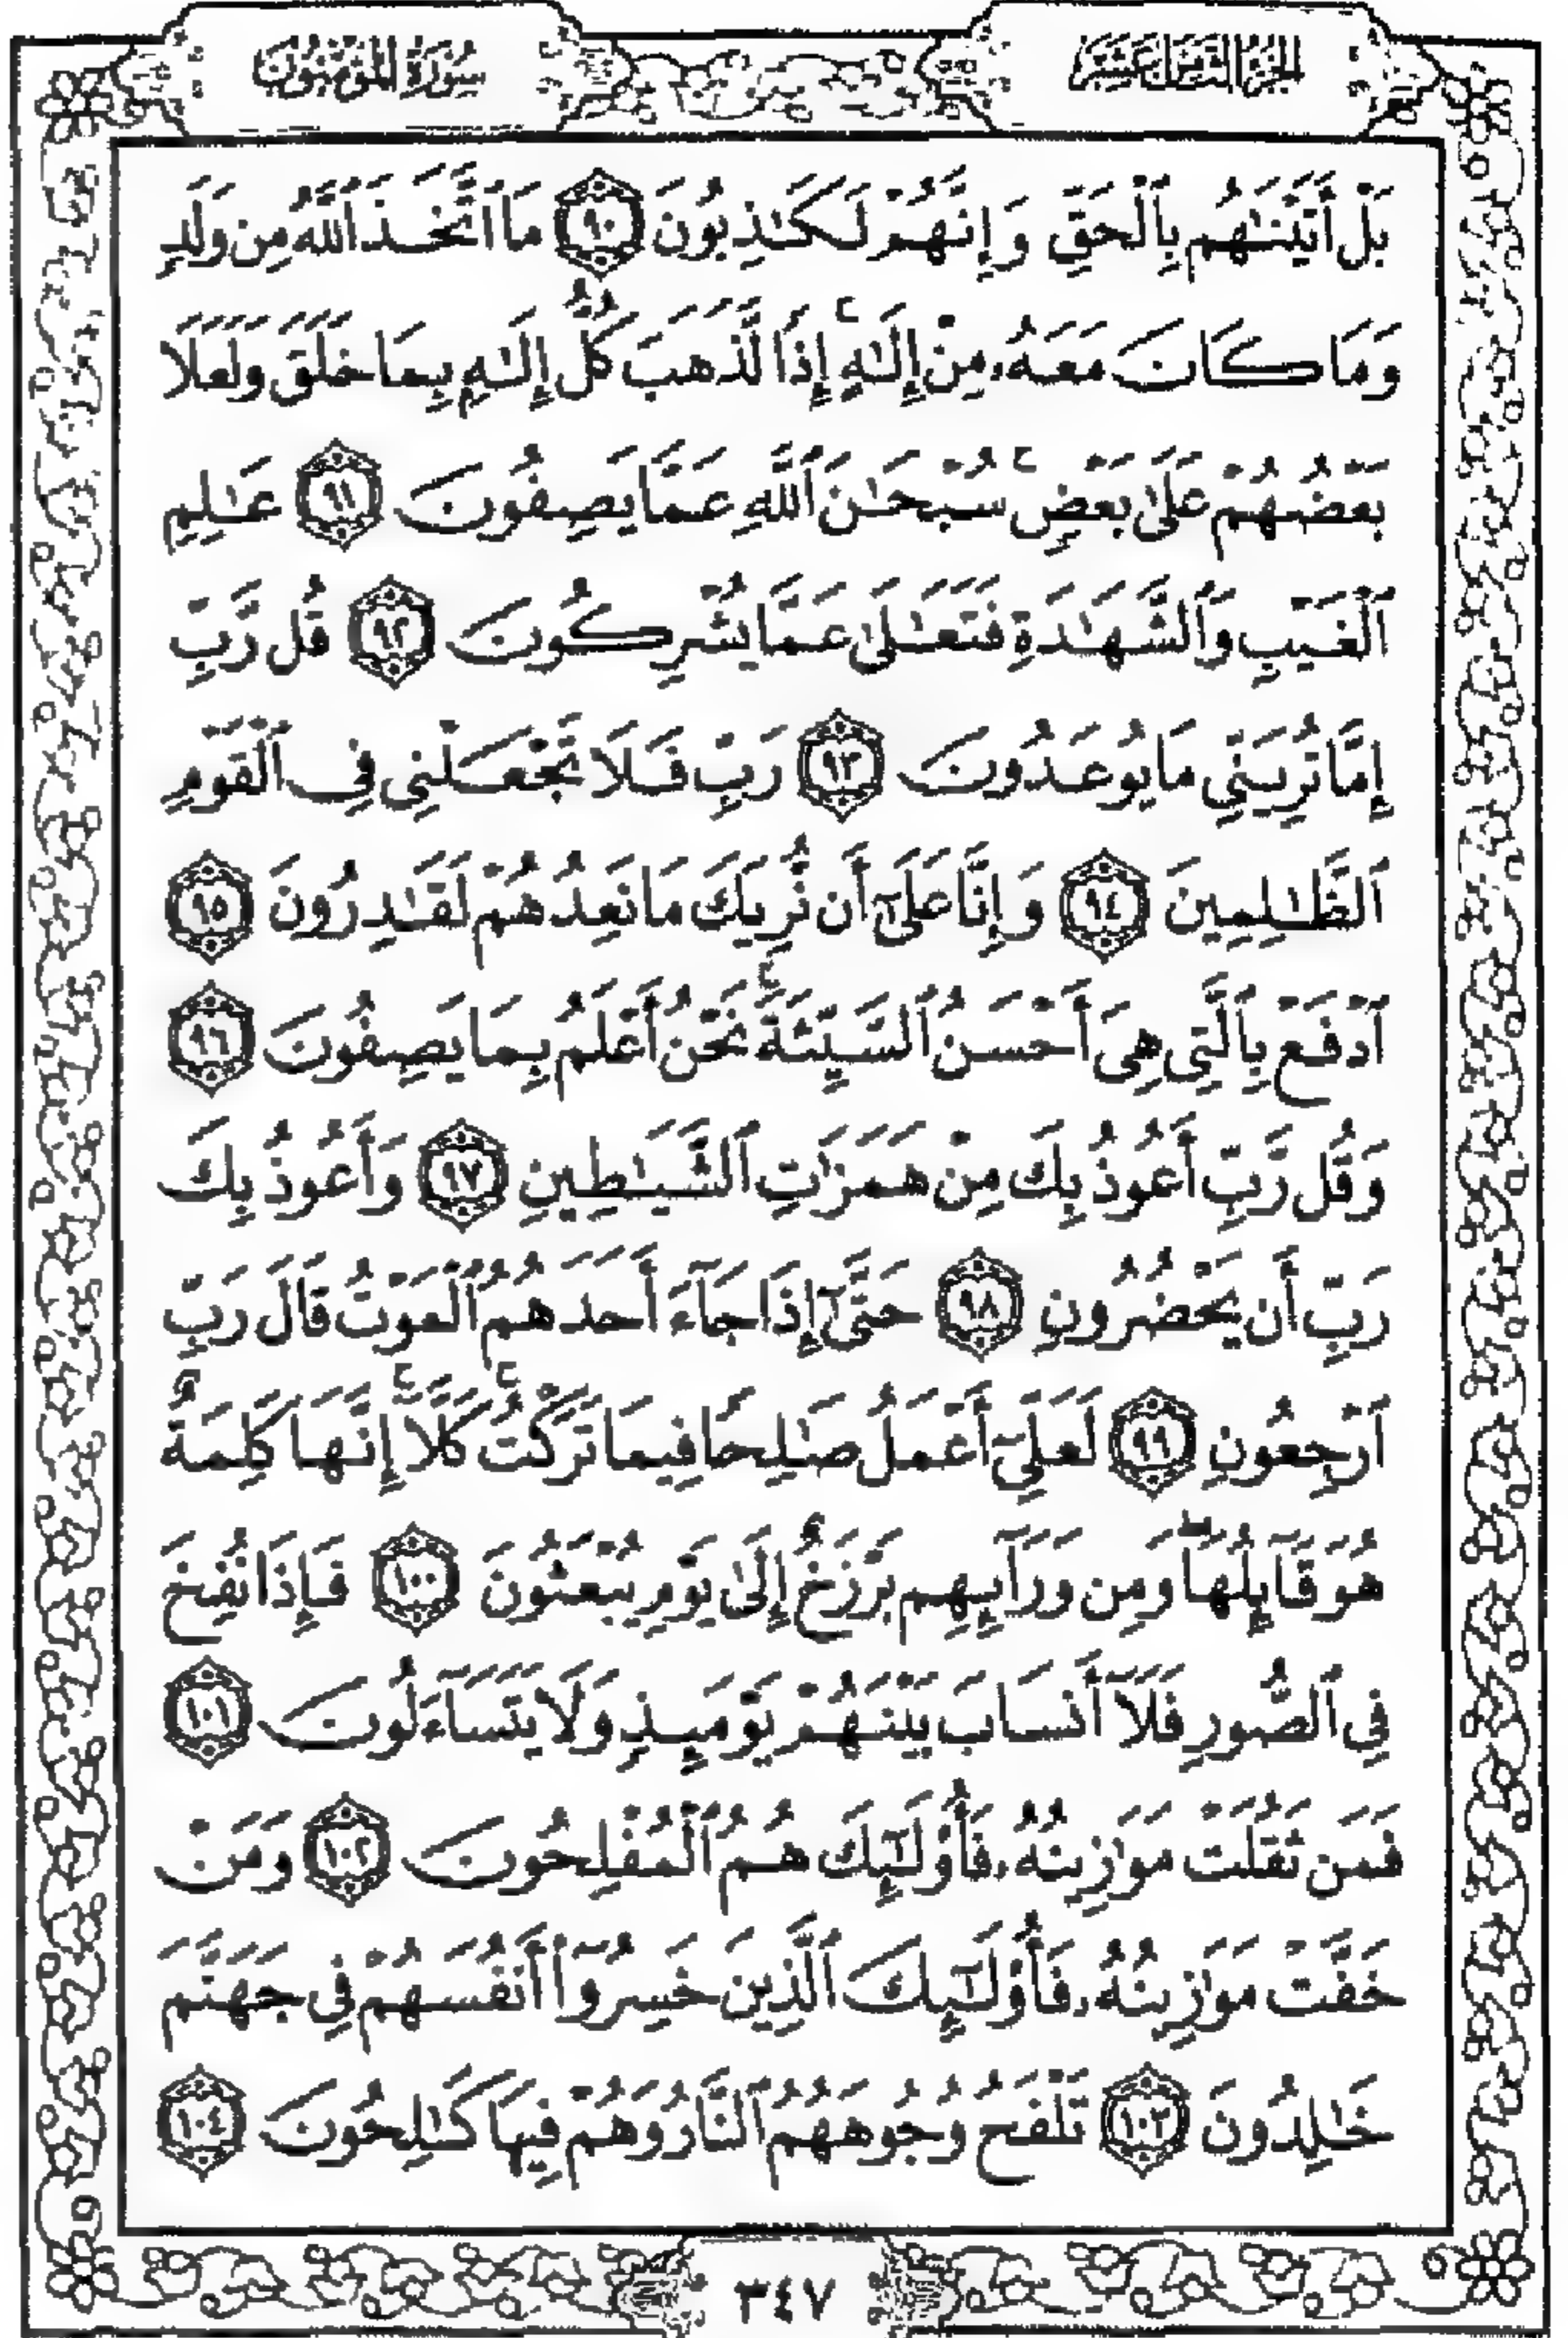 الجزء الثامن عشر
سورة المؤمنون
بَلْ أَتَيْنَٰهُم بِٱلْحَقِّ وَإِنَّهُمْ لَكَٰذِبُونَ ٩٠ مَا ٱتَّخَذَ ٱللَّهُ مِن وَلَدٍ
وَمَا كَانَ مَعَهُۥ مِنْ إِلَٰهٍ ۚ إِذًا لَّذَهَبَ كُلُّ إِلَٰهٍۭ بِمَا خَلَقَ وَلَعَلَا
بَعْضُهُمْ عَلَىٰ بَعْضٍ ۚ سُبْحَٰنَ ٱللَّهِ عَمَّا يَصِفُونَ ٩١ عَٰلِمِ
ٱلْغَيْبِ وَٱلشَّهَٰدَةِ فَتَعَٰلَىٰ عَمَّا يُشْرِكُونَ ٩٢ قُل رَّبِّ
إِمَّا تُرِيَنِّي مَا يُوعَدُونَ ٩٣ رَبِّ فَلَا تَجْعَلْنِي فِي ٱلْقَوْمِ
ٱلظَّٰلِمِينَ ٩٤ وَإِنَّا عَلَىٰٓ أَن نُّرِيَكَ مَا نَعِدُهُمْ لَقَٰدِرُونَ ٩٥
ٱدْفَعْ بِٱلَّتِي هِيَ أَحْسَنُ ٱلسَّيِّئَةَ ۚ نَحْنُ أَعْلَمُ بِمَا يَصِفُونَ ٩٦
وَقُل رَّبِّ أَعُوذُ بِكَ مِنْ هَمَزَٰتِ ٱلشَّيَٰطِينِ ٩٧ وَأَعُوذُ بِكَ
رَبِّ أَن يَحْضُرُونِ ٩٨ حَتَّىٰٓ إِذَا جَآءَ أَحَدَهُمُ ٱلْمَوْتُ قَالَ رَبِّ
ٱرْجِعُونِ ٩٩ لَعَلِّيٓ أَعْمَلُ صَٰلِحًا فِيمَا تَرَكْتُ ۚ كَلَّآ ۚ إِنَّهَا كَلِمَةٌ
هُوَ قَآئِلُهَا ۖ وَمِن وَرَآئِهِم بَرْزَخٌ إِلَىٰ يَوْمِ يُبْعَثُونَ ١٠٠ فَإِذَا نُفِخَ
فِي ٱلصُّورِ فَلَآ أَنسَابَ بَيْنَهُمْ يَوْمَئِذٍ وَلَا يَتَسَآءَلُونَ ١٠١
فَمَن ثَقُلَتْ مَوَٰزِينُهُۥ فَأُو۟لَٰٓئِكَ هُمُ ٱلْمُفْلِحُونَ ١٠٢ وَمَنْ
خَفَّتْ مَوَٰزِينُهُۥ فَأُو۟لَٰٓئِكَ ٱلَّذِينَ خَسِرُوٓا۟ أَنفُسَهُمْ فِي جَهَنَّمَ
خَٰلِدُونَ ١٠٣ تَلْفَحُ وُجُوهَهُمُ ٱلنَّارُ وَهُمْ فِيهَا كَٰلِحُونَ ١٠٤
٣٤٧